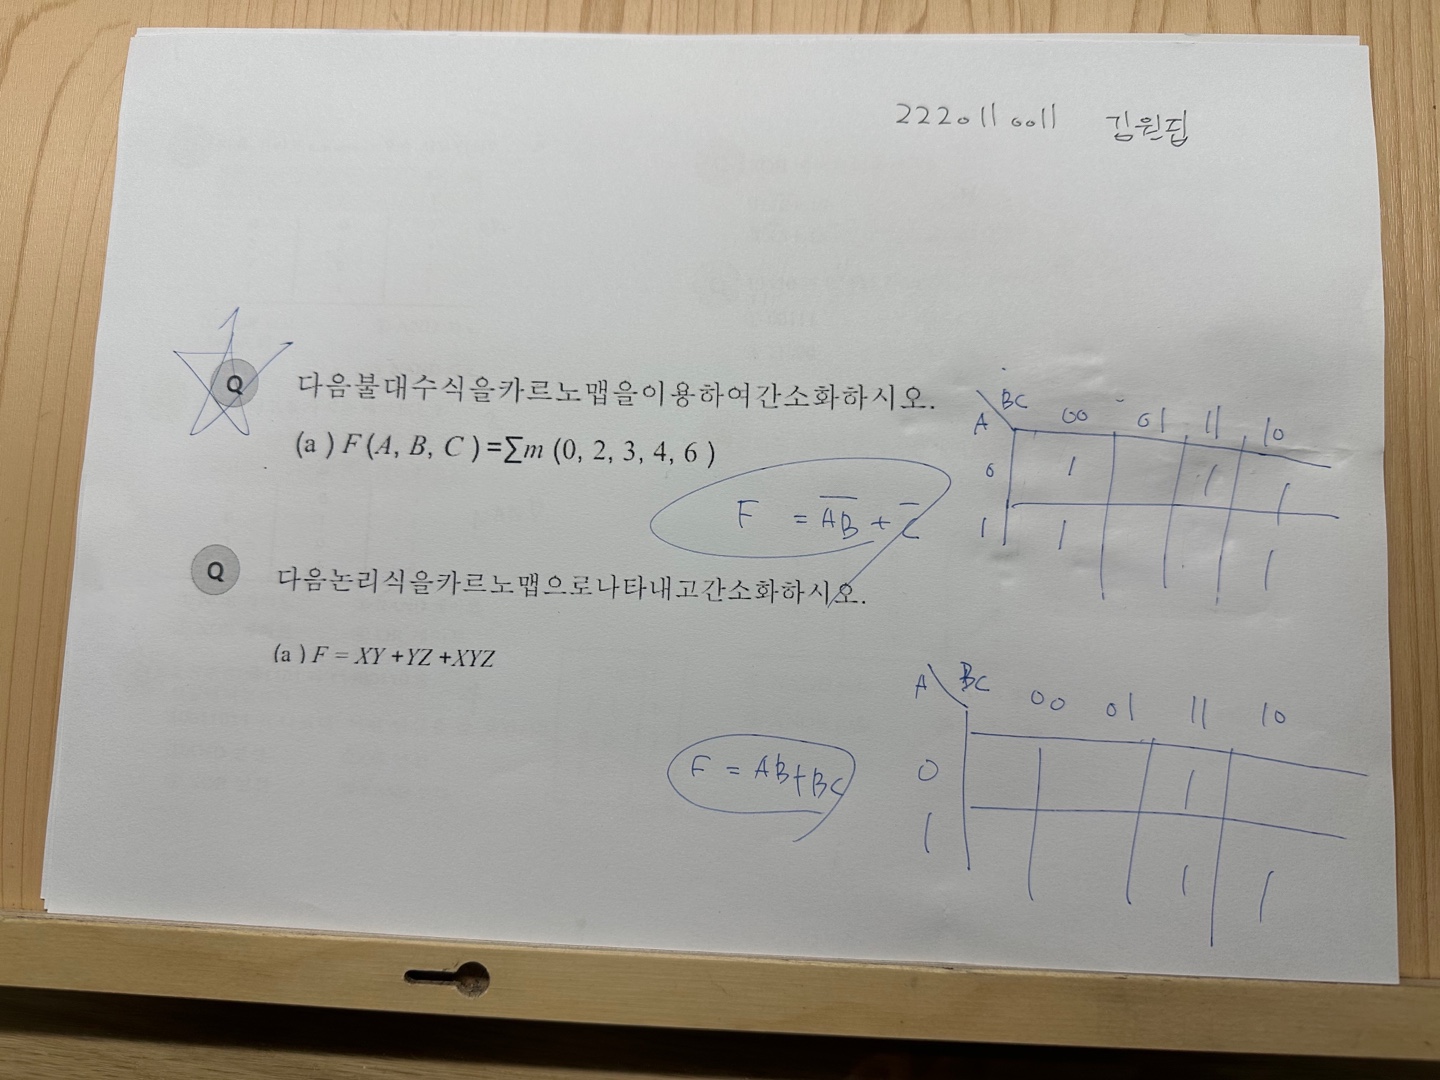 2220110011 김원딥
Q 다음불대수식을카르노맵을이용하여간소화하시오.
(a) F(A, B, C)=∑m (0, 2, 3, 4, 6)
F = A̅B̅ + C̅
A BC 00 01 11 10
0 1 1 1
1 1 1
Q 다음논리식을카르노맵으로나타내고간소화하시오.
(a) F = XY +YZ +XYZ
F = AB+BC
A BC 00 01 11 10
0 1
1 1 1